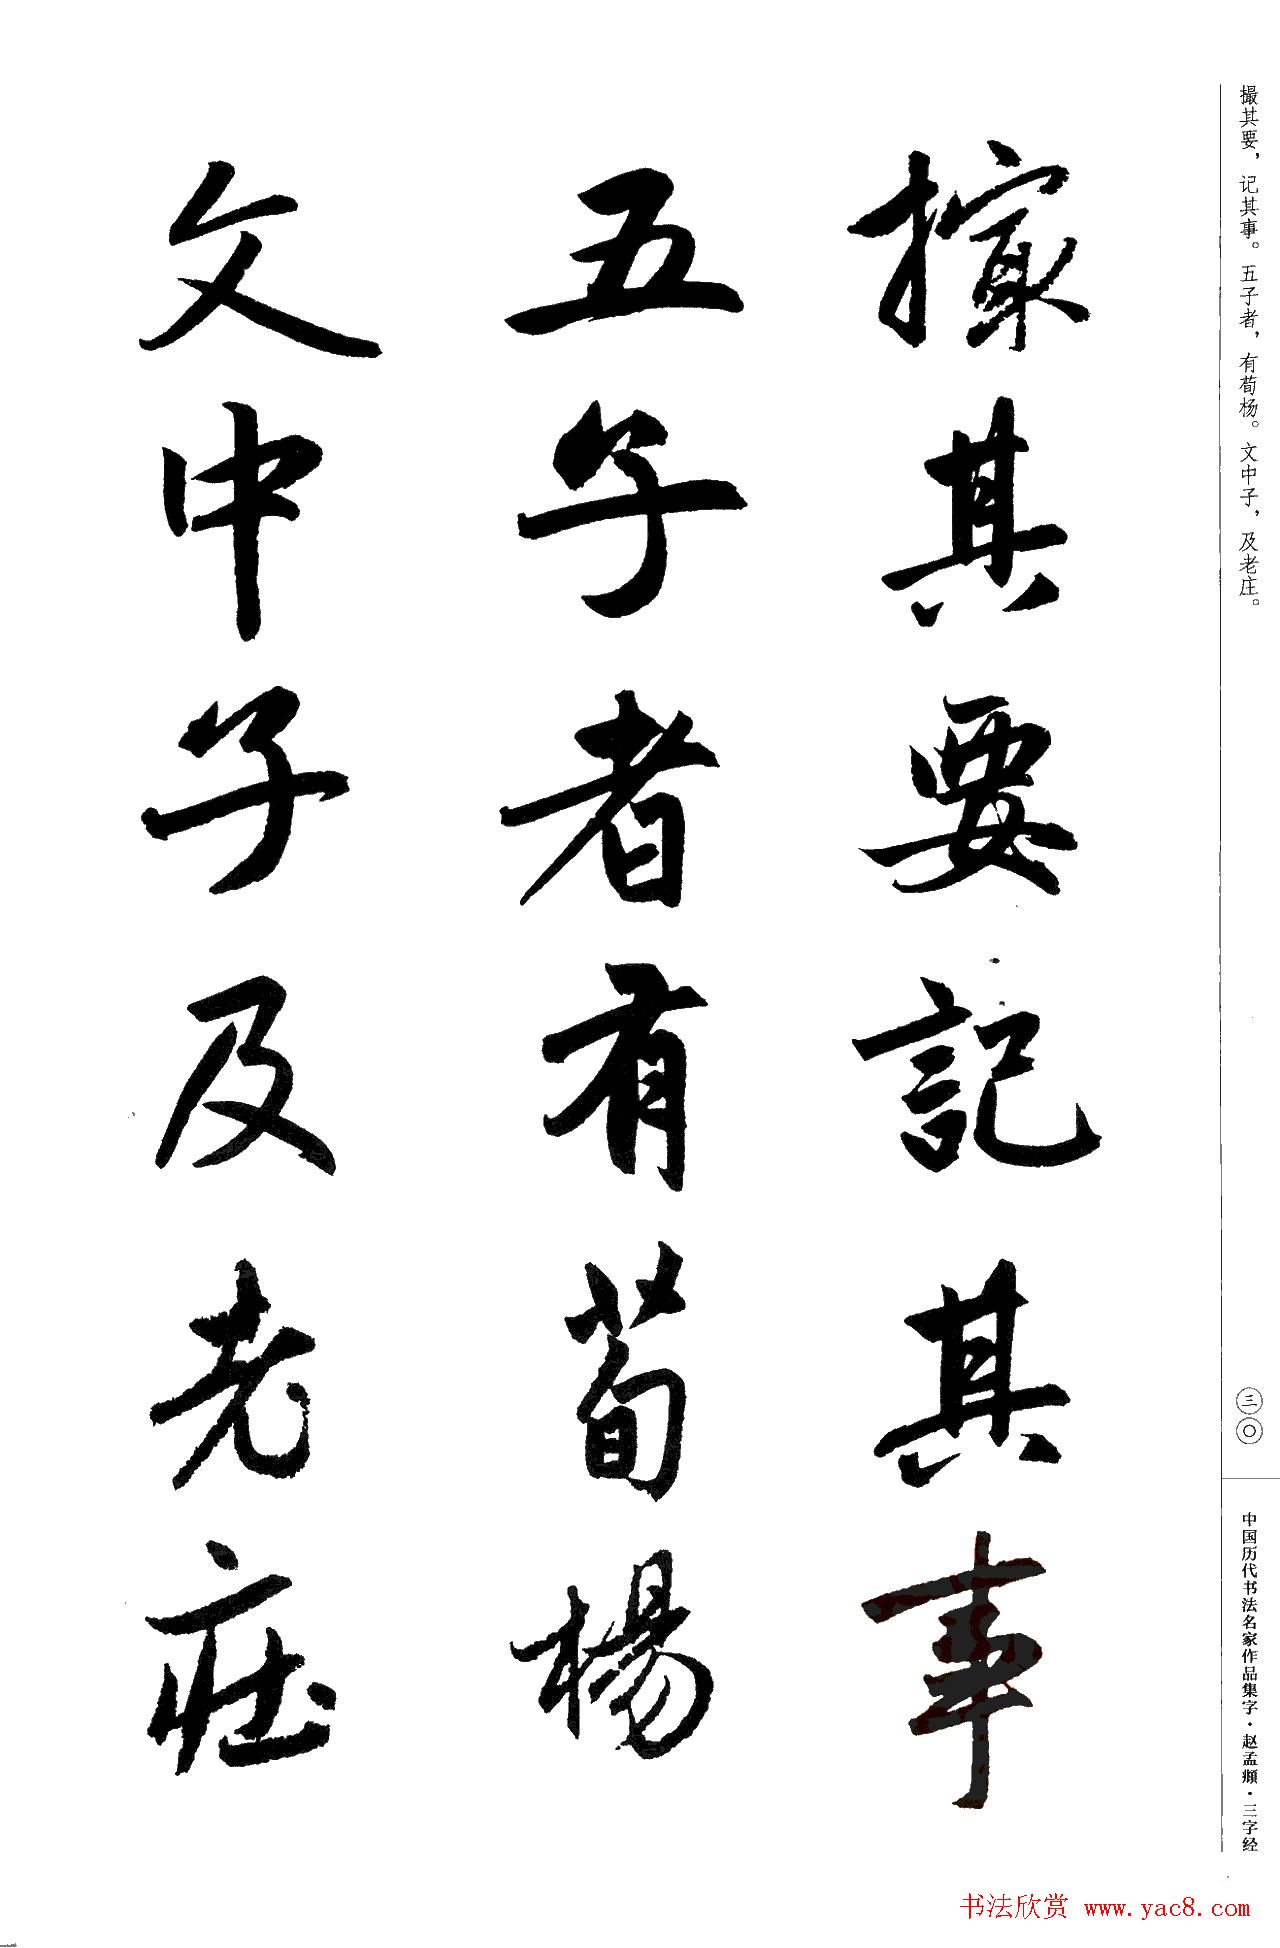 撮其要，记其事。五子者，有荀杨。文中子，及老庄。
三〇
中国历代书法名家作品集字·赵孟頫·三字经
撮其要記其事
五子者有荀楊
文中子及老庄
书法欣赏 www.yac8.com